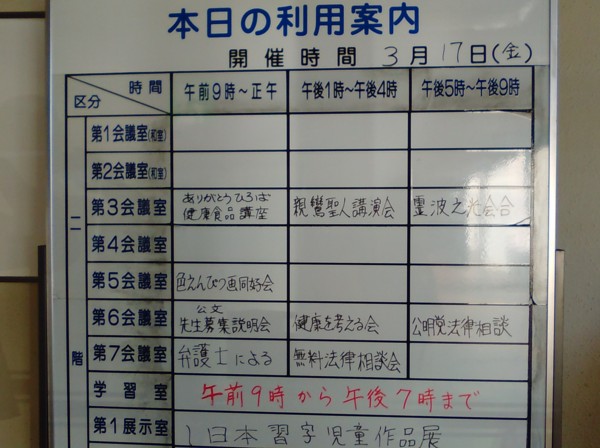 本日の利用案内
開催時間 3月17日(金)
時間 区分 午前9時～正午 午後1時～午後4時 午後5時～午後9時
二階
第1会議室(和室)
第2会議室(和室)
第3会議室 ありがとうひろば 健康食品講座 親鸞聖人講演会 霊波之光会合
第4会議室
第5会議室 色えんぴつ画同好会
第6会議室 公文 先生募集説明会 健康を考える会 公明党法律相談
第7会議室 弁護士による 無料法律相談会
学習室 午前9時から午後7時まで
第1展示室 日本習字児童作品展